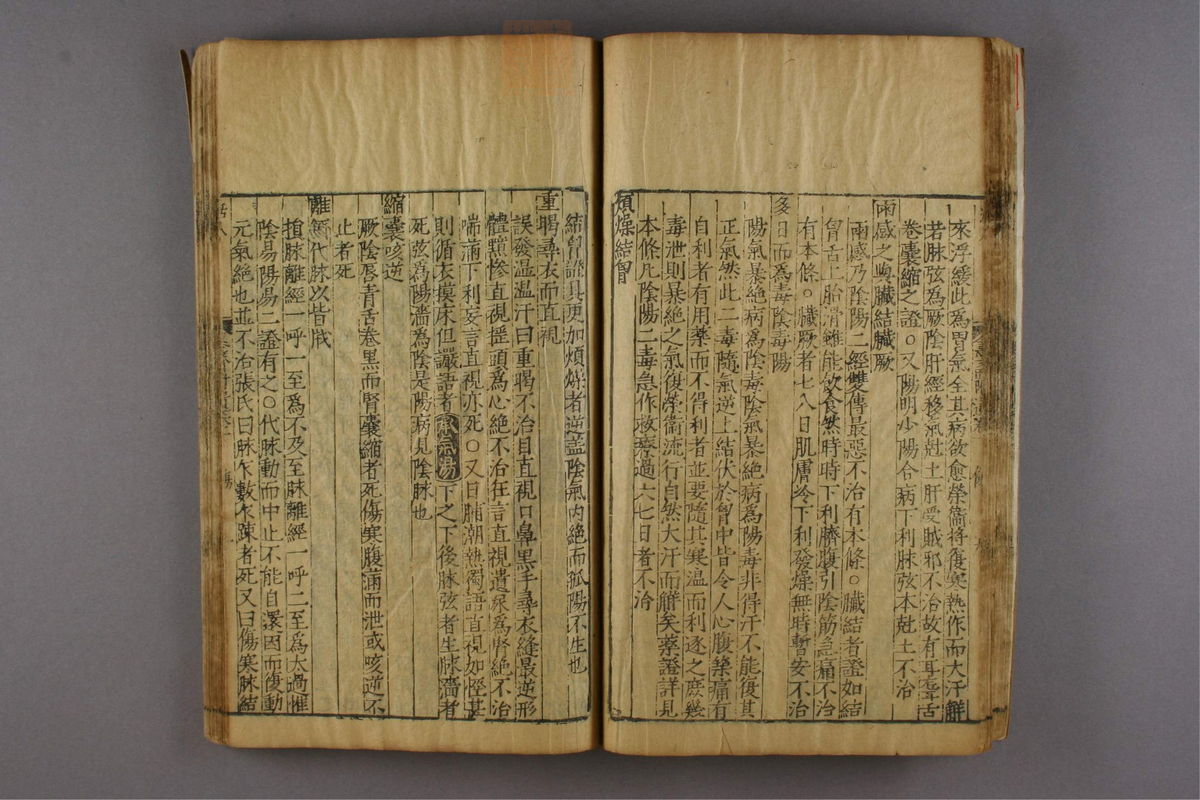 來浮緩此為胃氣全其病欲愈榮衞將復寒熱作而大汗觧
若脉弦為厥陰肝經移氣尅土肝受賊邪不治故有耳聾舌
卷囊縮之證○又陽明少陽合病下利脉弦本尅土不治
兩感之興臟結臟厥
兩感乃陰陽二經雙傳最惡不治有本條○臟結者證如結
胷舌上胎滑雖能飲食然時時下利臍腹引陰筋急痛不治
有本條○臟厥者七八日肌膚冷下利發燥無時暫安不治
多日而為毒陰毒陽
陽氣暴絶病為陰毒陰氣暴絶病為陽毒非得汗不能復其
正氣然此二毒隨氣逆上結伏於胷中皆令人心腹築痛有
自利者有用藥而不得利者並要隨其寒温而利逐之庶幾
毒泄則暴絶之氣復榮衞流行自然大汗而觧矣藥證詳見
本條凢陰陽二毒急作救療過六七日者不治
煩燥結胷
結胷證具更加煩燥者逆盖陰氣内絶而孤陽不生也
重暍尋衣而直視
誤發温温汗曰重暍不治目直視口鼻黒手尋衣縫最逆形
體黧慘直視揺頭為心絶不治狂言直視遺尿為腎絶不治
喘滿下利妄言直視亦死○又日晡潮熱獨語直視如𢙣甚
則循衣摸床但讝語者承氣湯下之下後脉弦者生脉濇者
死弦為陽濇為陰是陽病見陰脉也
縮囊咳逆
厥陰唇青舌卷黒而腎囊縮者死傷寒腹滿而泄或咳逆不
止者死
離經代脉以皆戕
損脉離經一呼一至為不及至脉離經一呼二至為太過惟
陰陽陽易二證有之○代脉動而中止不能自還因而復動
元氣絶也並不治張氏曰脉乍數乍踈者死又曰傷寒脉結